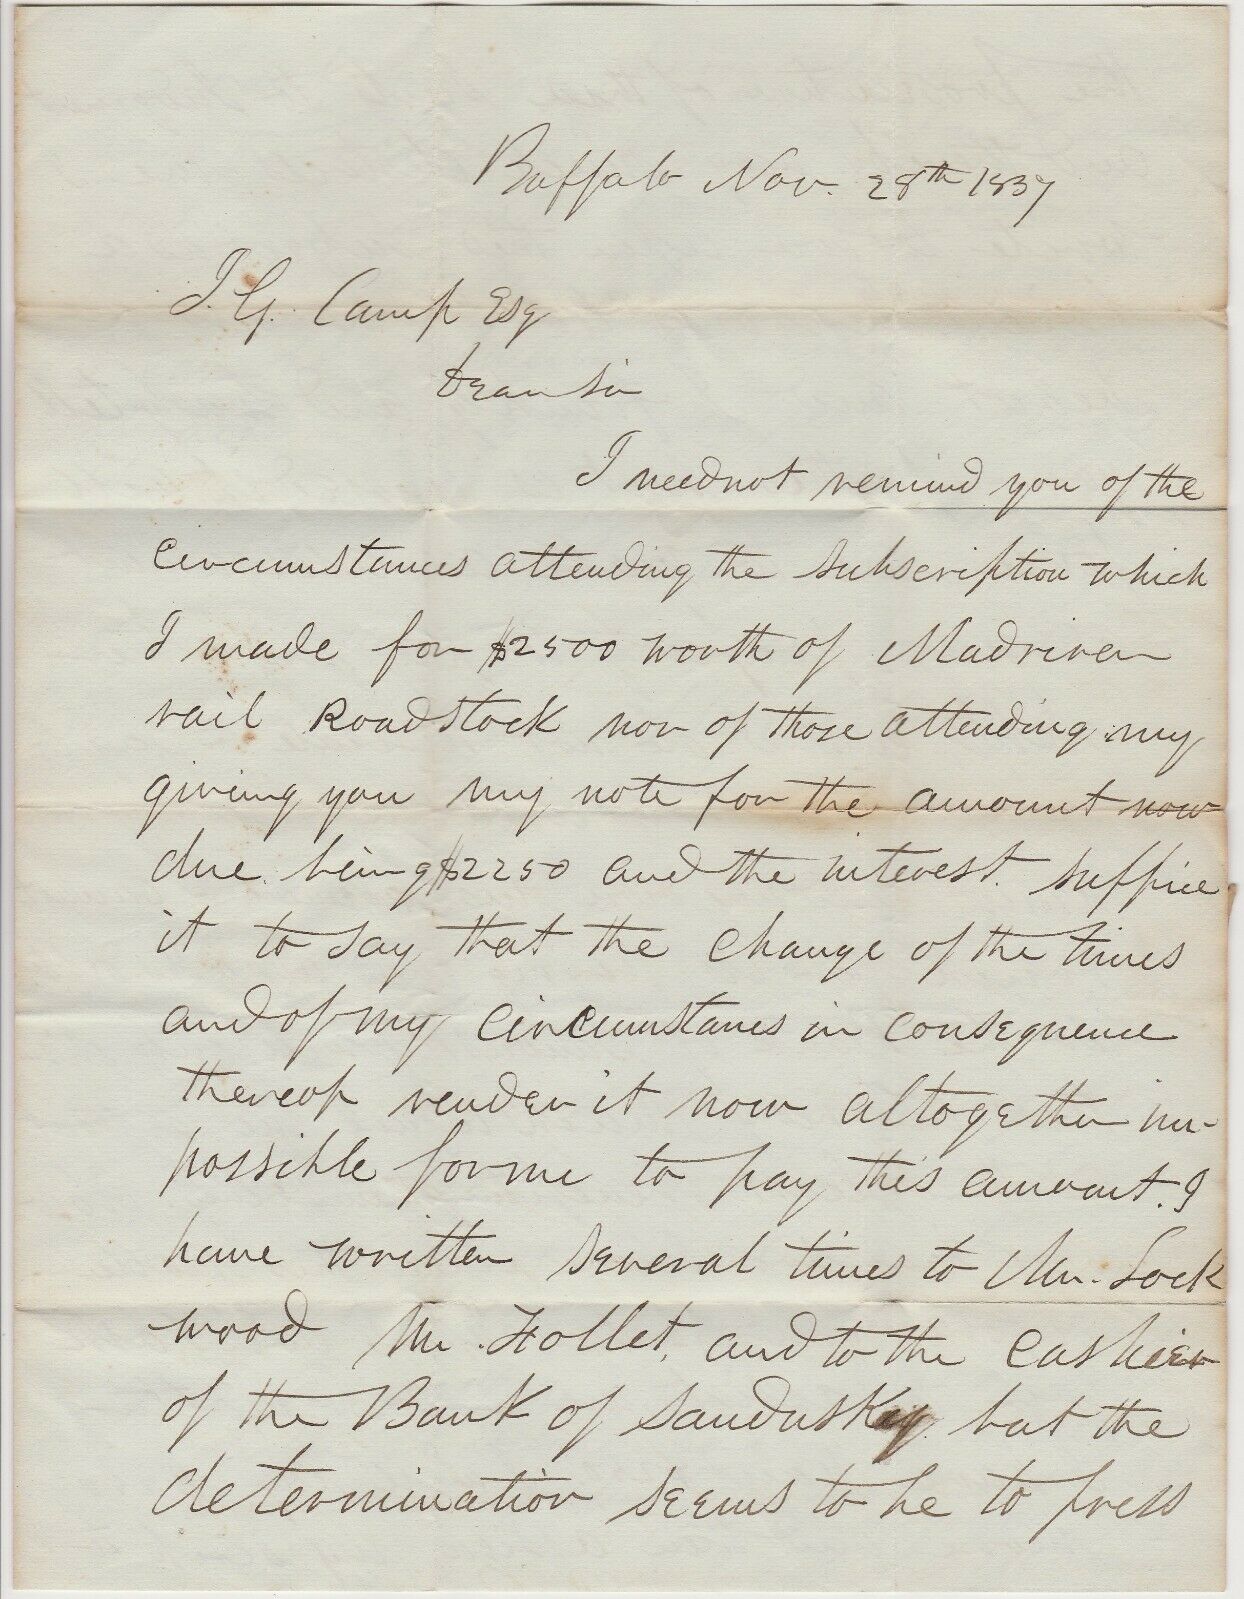 Buffalo Nov. 28th 1837
J. G. Camp Esq
Dear Sir
I need not remind you of the
circumstances attending the subscription which
I made for $2500 worth of Madriver
rail Road stock nor of those attending my
giving you my note for the amount now
due being $2250 and the interest. Suffice
it to say that the change of the times
and of my circumstances in consequence
thereof render it now altogether im-
possible for me to pay this amount. I
have written several times to Mr. Lock
wood Mr. Follet, and to the Cashier
of the Bank of Sandusky but the
determination seems to be to press